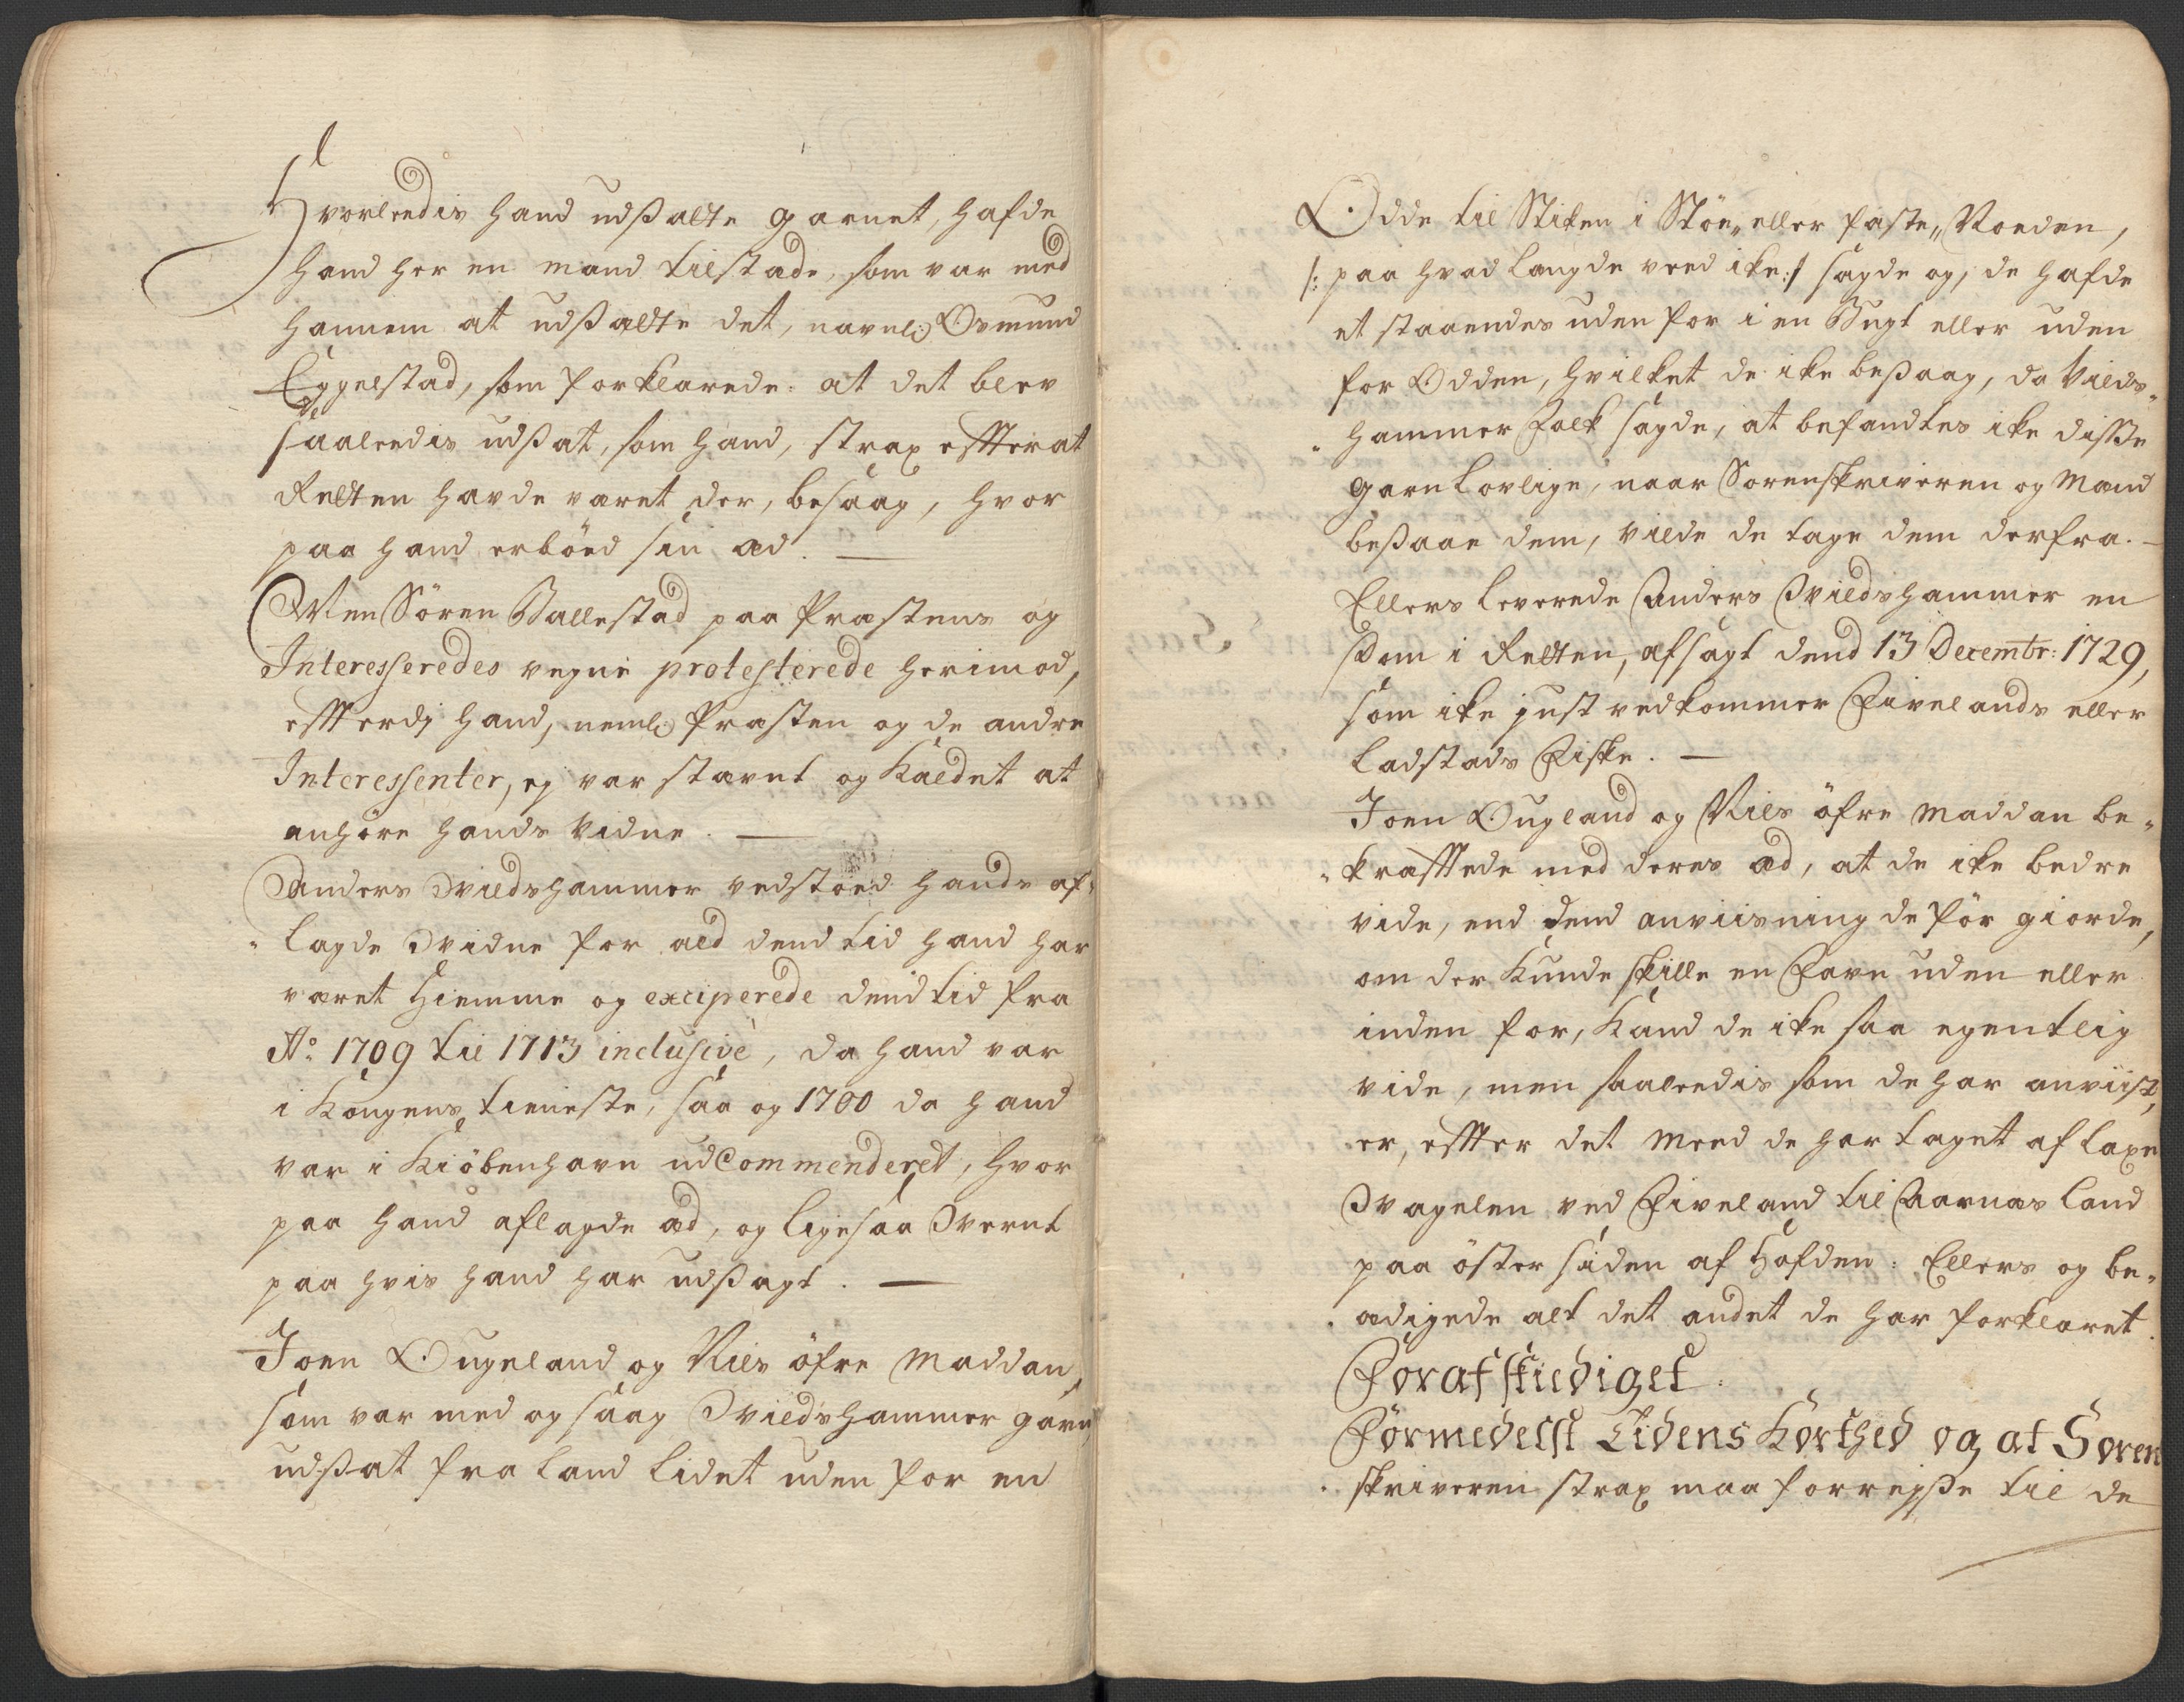 Hvorledis hand udßatte garnet, hafde
hand her en mand tilstæde, som var med
hannem at udßætte det, navnl: Osmund
Eggelstad, som forklarede: at det blev
saaledis udßat, som hand, strax effterat
Retten havde været der, besaag, hvor
paa hand erböed sin æd. —
Men Sören Ballestad paa Præstens og
Interesseredes vegne protesterede herimod,
efferdj hand, neml: Præsten og de andre
Interessenter, ej var stævnt og Kaldet at
anhöre hands vidne. —
Anders Qvildshammer vedstoed hands af„
„lagde Qvidne for ald dend tid hand har
været Hiemme og exciperede dend tid fra
A:o 1709 til 1713 inclusivè, da hand var
i Kongens tieneste, saa og 1700 da hand
var i Kiöbenhavn ud Commenderet, hvor
paa hand aflagde æd, og ligesaa Qvernt
paa hvis hand har udßagt. —
Joen Ougeland og Niels öfre Maddan,
som var med og saag Qvieldshammer garn
udßat fra Land lidet uden for en
Odde til Stiken i Stöe„ eller faste„ Noeden,
/: paa hvad Længde veed ike :/ sagde og, de hafde
et staaendes uden for i en Bugt eller uden
for Odden, hvilket de ike beßaag, da Vilds„
„hammer Folk sagde, at befandtes ike disse
garn Lovlige, naar Sorenskriveren og Mænd
beßaae dem, vilde de tage dem derfra. —
Ellers Leverede Anders Qvieldshammer en
Dom i Retten, afsagt dend 13 Decembr: 1729,
som ike just vedkommer Fivelands eller
Ladstads Fiske. —
Joen Ougland og Niels öfre Maddan be„
„kræfftede med deres æd, at de ike bedre
vide, end dend anviisning de för giorde,
om der Kunde skille en Favn uden eller
inden for, Kand de ike saa egentlig
vide, men saaledis som de har anviist,
er, effter det Meed de har taget af Laxe
Qvagelen ved Fiveland til Aarnæs Land
paa öster siden af Höfden: Ellers og be„
„ædigede alt det andet de har forklaret.
Forafskiediget.
Formedelst Tidens Korthed og at Soren
„skriveren strax maa forreyße til de